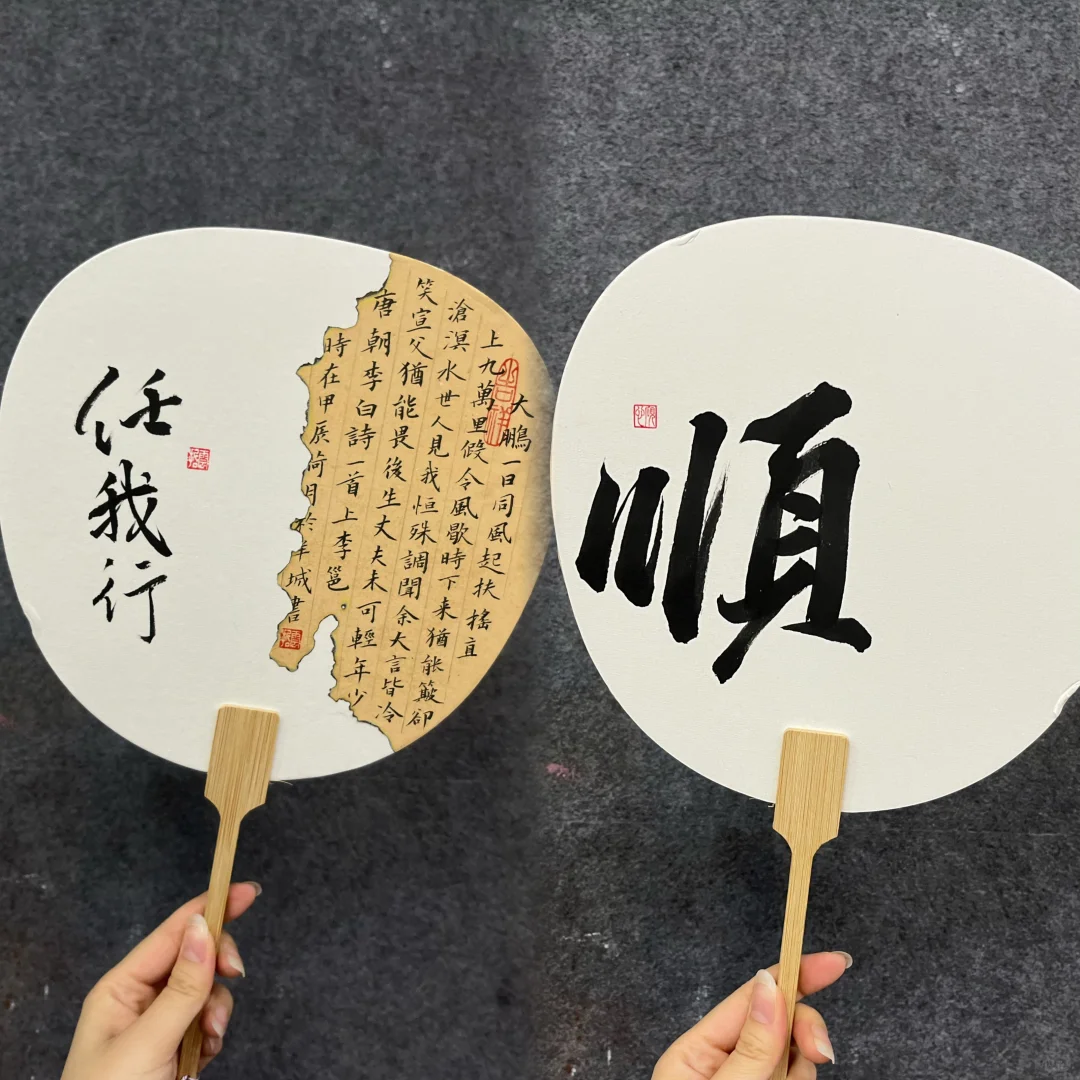 任我行
大鵬一日同風起扶搖直
上九萬里假令風歇時下来猶能簸卻
滄溟水世人見我恒殊調聞余大言皆冷
笑宣父猶能畏後生丈夫未可輕年少
唐朝李白詩一首上李邕。
時在甲辰荷月於羊城書
吉祥
順